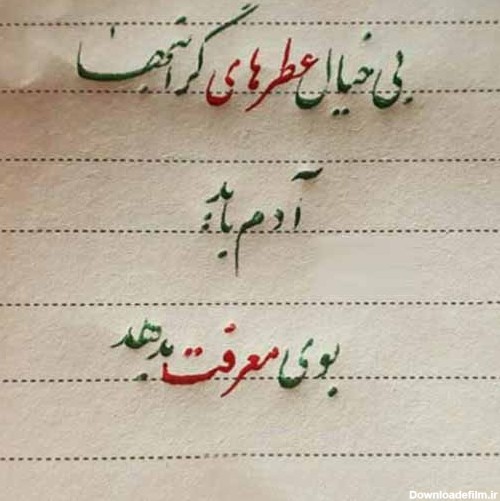 بی خیال عطرهای گرانبها
آدم باید
بوی معرفت بدهد
Downloadefilm.ir